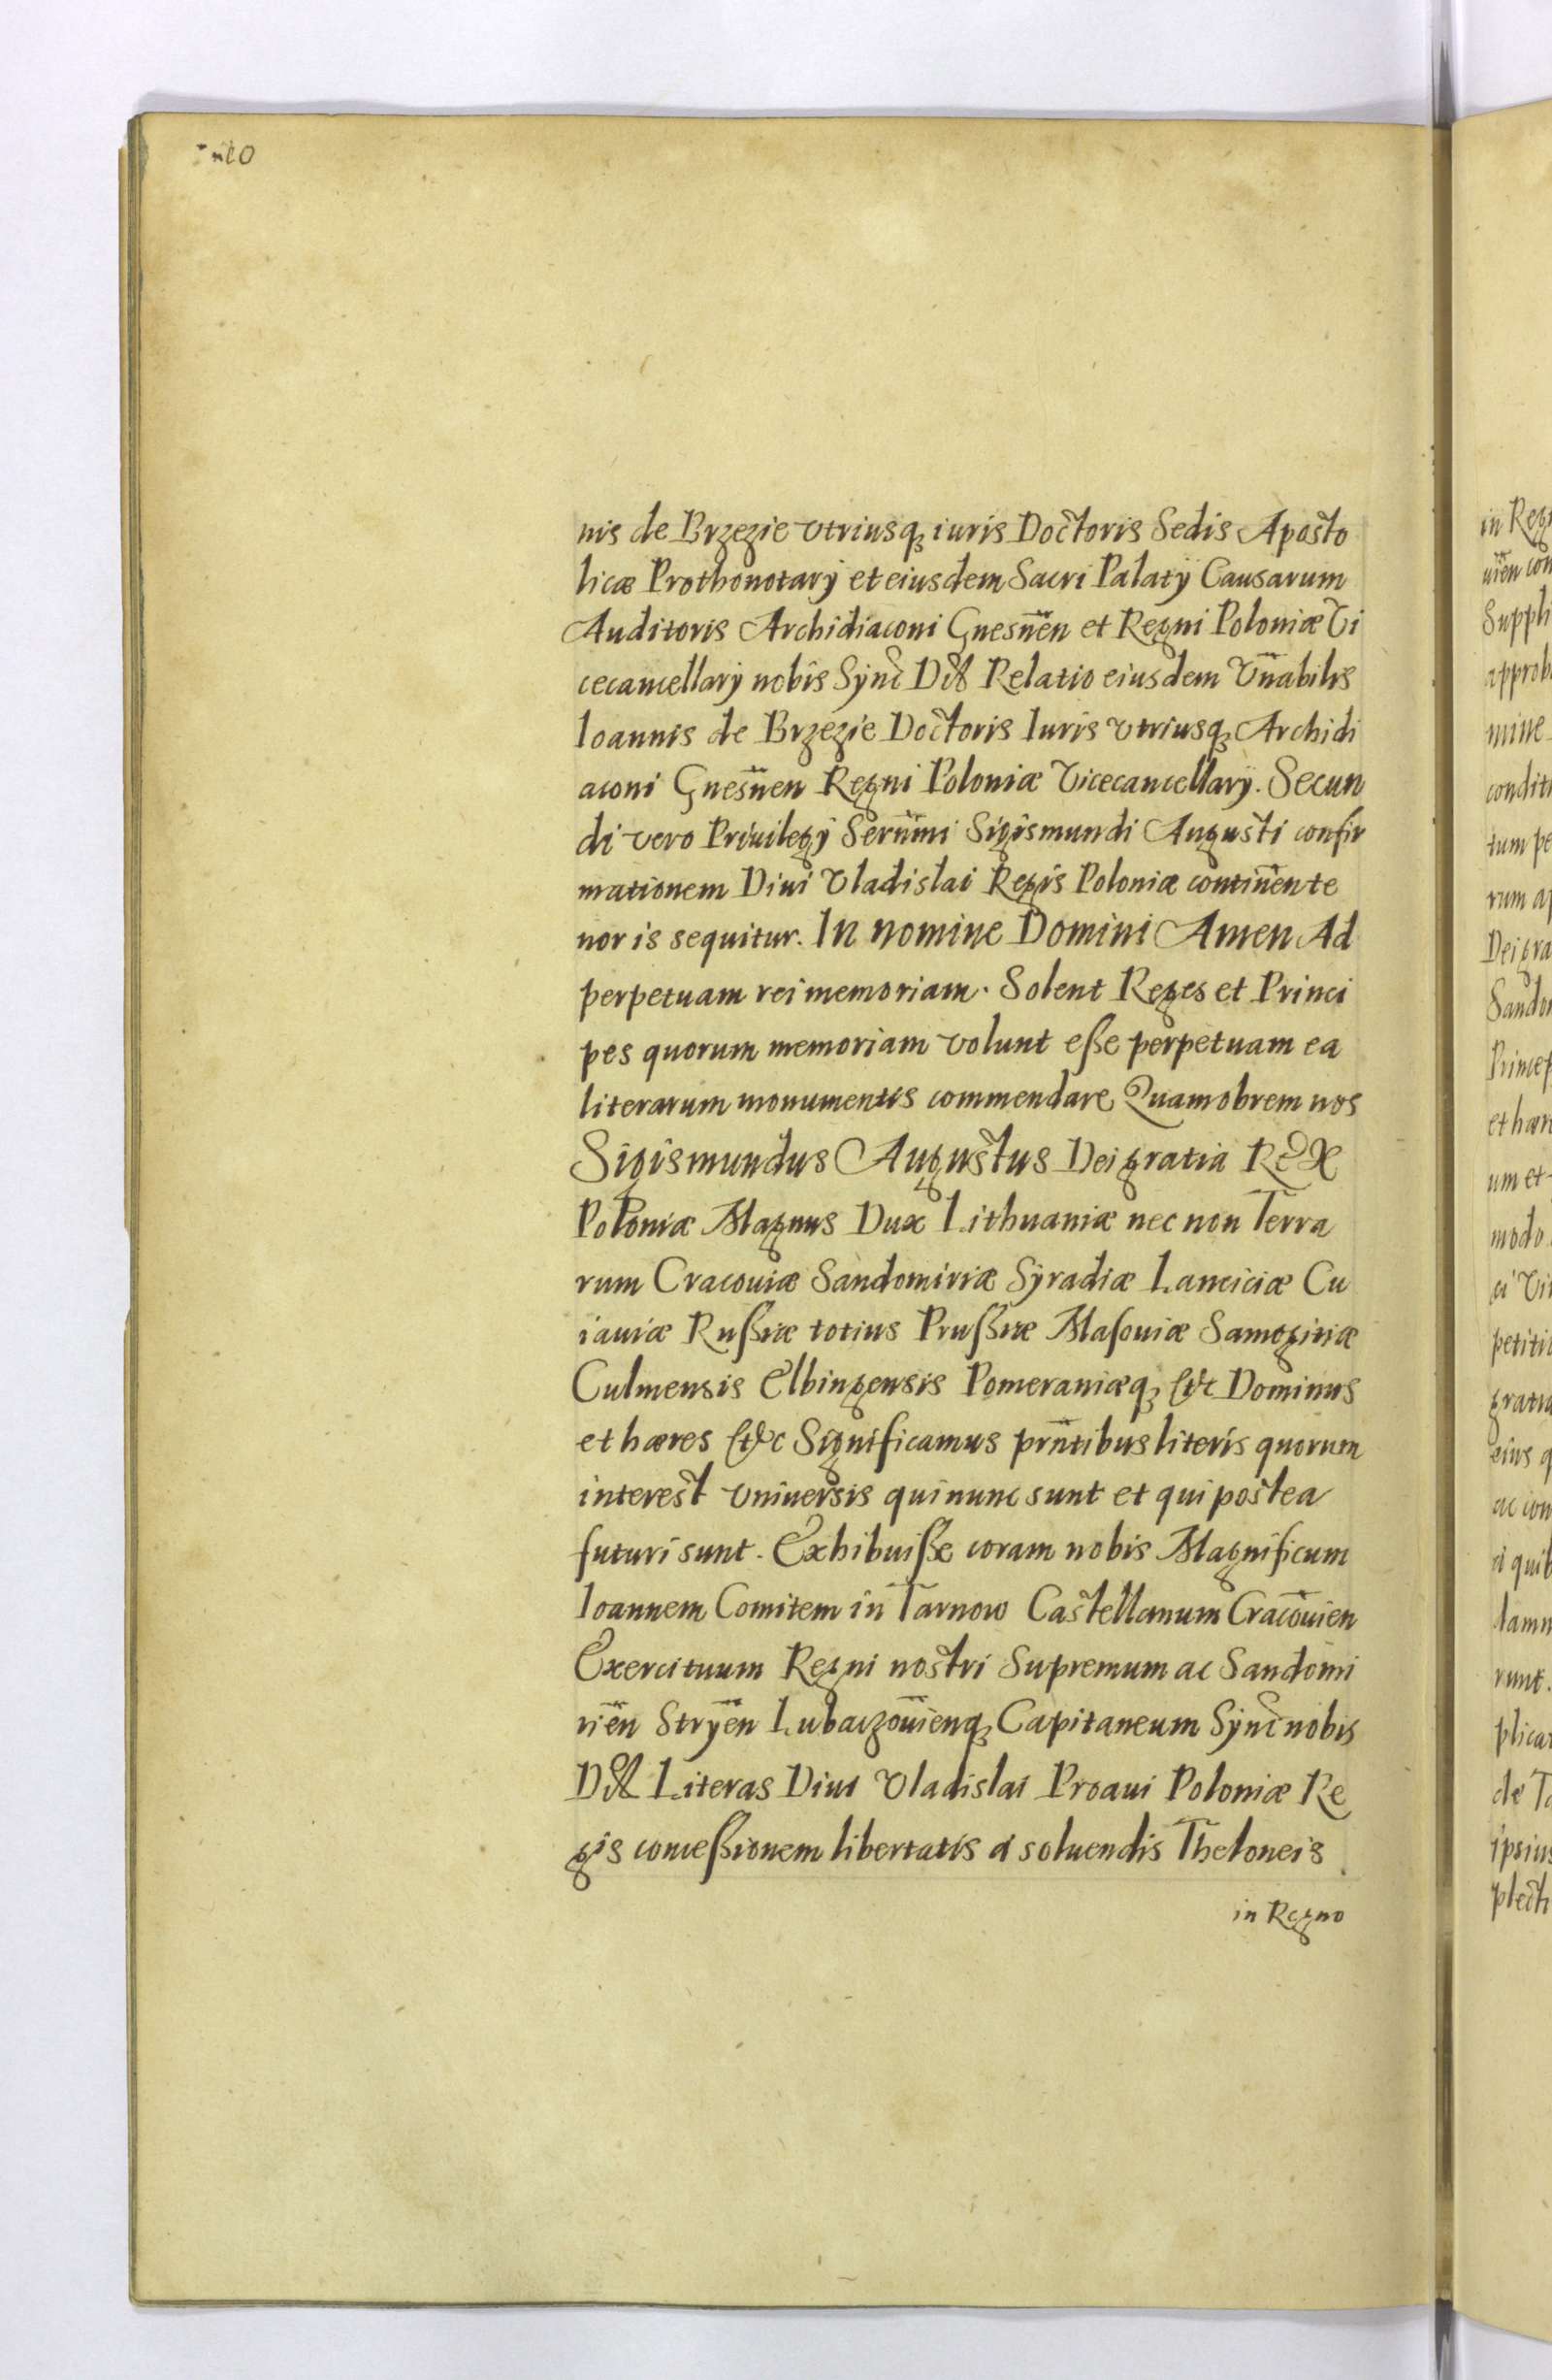 nis de Brzezie vtriusqꝫ iuris Doctoris Sedis Aposto
licæ Prothonotarÿ et eiusdem Sacri Palatÿ Causarum
Auditoris Archidiaconi Gnesn̄en et Regni Poloniæ Vi
cecancellarÿ nobis Sÿnc̄ Relatio eiusdem Vn̄abilis
Ioannis de Brzezie Doctoris Iuris vtriusqꝫ Archidi
aconi Gnesn̄en Regni Poloniæ Vicecancellarÿ. Secun
di vero Priuilegÿ Sern̄imi Sigismundi Augusti confir
mationem Diui Vladislai Regis Poloniæ contin̄en te
nor is sequitur. In nomine Domini Amen Ad
perpetuam rei memoriam. Solent Reges et Princi
pes quorum memoriam volunt eße perpetuam ea
literarum monumentis commendare Quamobrem nos
Sigismundus Augustus Dei gratia Rex
Poloniæ Magnus Dux Lithuaniæ nec non Terra
rum Cracouiæ Sandomiriæ Sÿradiæ Lanciciæ Cu
iauiæ Rußiæ totius Prußiæ Masouiæ Samogitiæ
Culmensis Elbingensis Pomeraniæqꝫ &c Dominus
et hæres &c Significamus prn̄tibus literis quorum
interest vniuersis qui nunc sunt et qui postea
futuri sunt. Exhibuiße coram nobis Magnificum
Ioannem Comitem in Tarnow Castellanum Cracōuien
Exercituum Regni nostri Supremum ac Sandomi
rien̄ Strÿen̄ Lubaczou̅ienqꝫ Capitaneum Sÿnc̄ nobis
Literas Diui Vladislai Proaui Poloniæ Re
gis conceßionem libertatis a soluendis Theloneis
in Regno
in Reg
Suppli
approb
mine
condit
tum pe
rum a
Dei gra
Sando
Princep
et hær
um et
modo
petitio
gratia
eius q
ac con
damn
runt.
plica
de Ta
ipsius